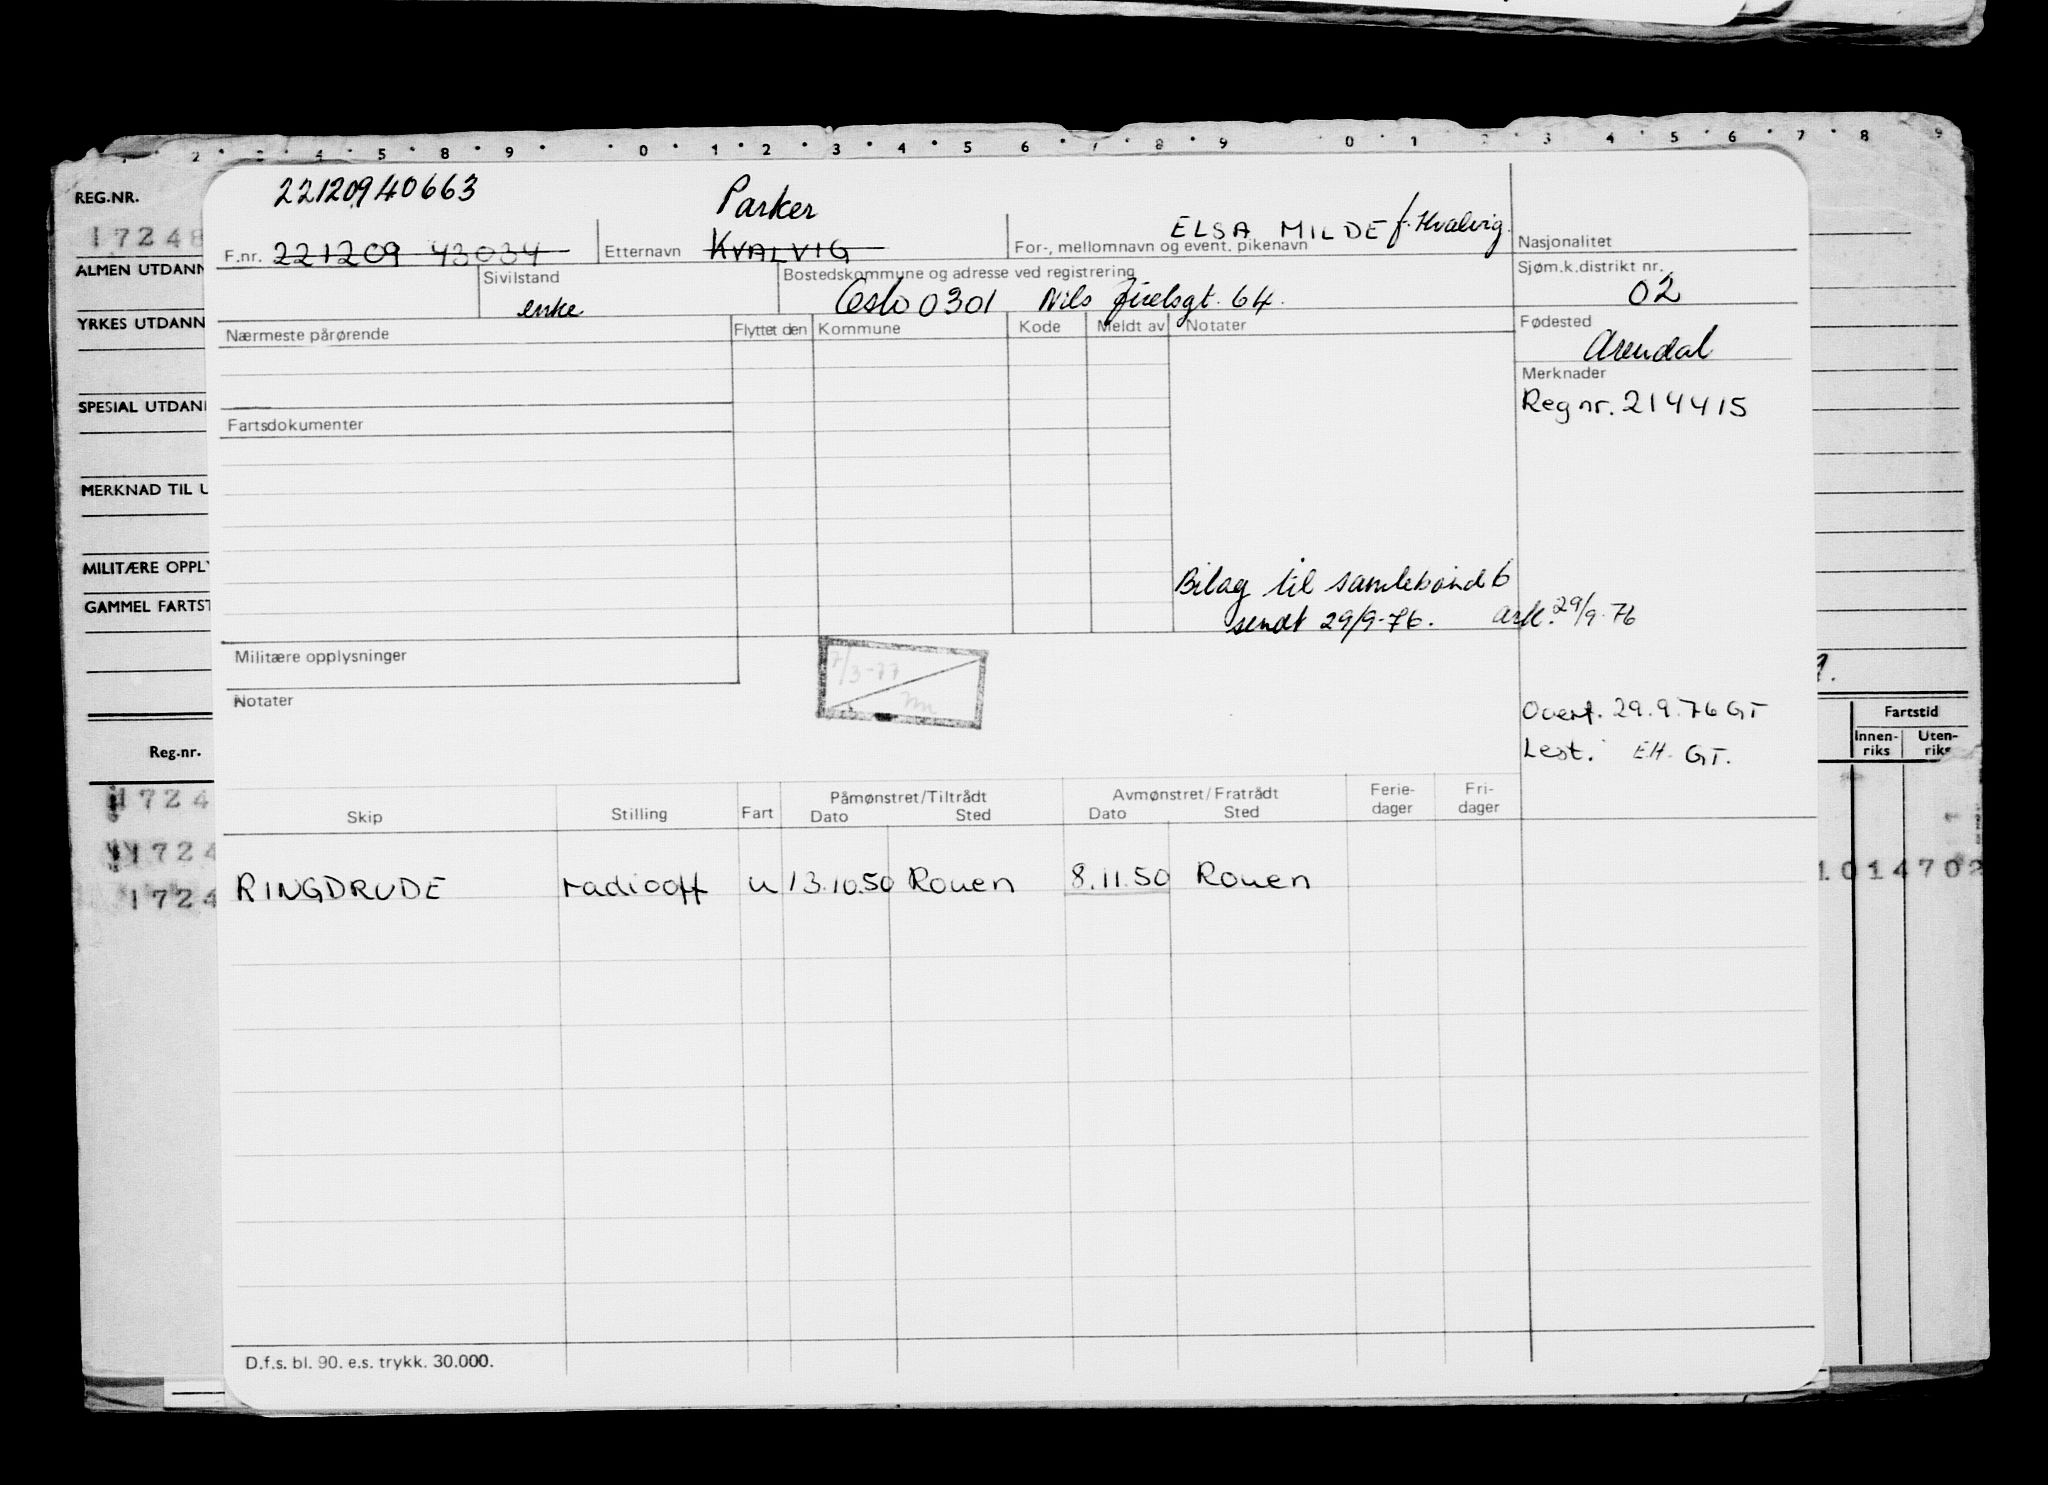 1 2 3 4 5 8 9 0 1 2 3 4 5 6 7 8 9 0 1 2 3 4 5 6 7 8 9
REG.NR.
17248
22120940663
Parker
F.nr. 221209 43034
Etternavn KVALVIG
For-, mellomnavn og event. pikenavn ELSA MILDE f. Hvalvig.
Nasjonalitet
ALMEN UTDANN
Sivilstand
enke
Bostedskommune og adresse ved registrering
Oslo 0301 Nils Juelsgt. 64.
Sjøm.k.distrikt nr.
02
YRKES UTDANN
Nærmeste pårørende
Flyttet den
Kommune
Kode
Meldt av
Notater
Fødested
Arendal
Merknader
Reg nr. 214415
SPESIAL UTDAN
Fartsdokumenter
MERKNAD TIL U
MILITÆRE OPPLY
GAMMEL FARTST
Bilag til samlebånd 6
sendt 29/9-76. ark. 29/9-76
Militære opplysninger
7/3-77
Notater
Overf. 29.9.76 GT
Lest. EH. GT.
Reg.nr.
Fartstid
Innen-
riks
Uten-
riks
Skip
Stilling
Fart
Påmønstret/Tiltrådt
Dato Sted
Avmønstret/Fratrådt
Dato Sted
Ferie-
dager
Fri-
dager
1724
1724
1724
RINGDRUDE radiooff u 13.10.50 Rouen 8.11.50 Rouen
1014702
D.f.s. bl. 90. e.s. trykk. 30.000.